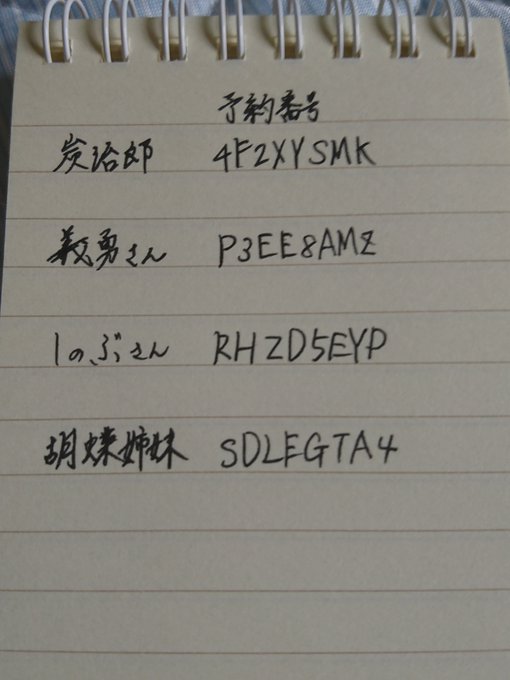 予約番号
炭治郎 4F2XYSMK
義勇さん P3EE8AMZ
しのぶさん RHZD5EYP
胡蝶姉妹 SDLEGTA4